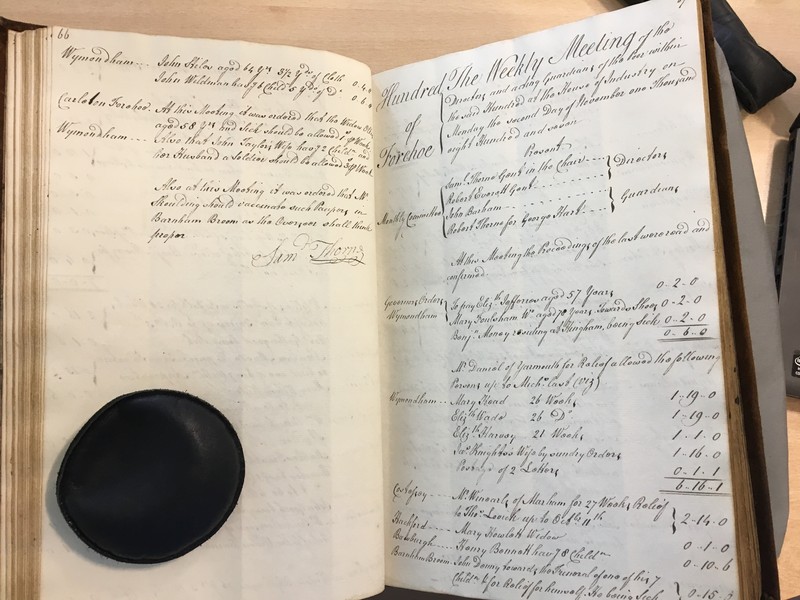 66
Wymondham -- John Hilos aged 64 Yrs 3 1/2 Yds of Cloth 0-4-
John Wildman has 7 Childn 5 Yds of Do 0-6-0
Carleton Forehoe. At this Meeting it was ordered that the Widow
aged 58 Yrs and Sick should be allowed Week
Wymondham --- Also that John Taylors Wife has 2 Childn and
her Husband a Soldier should be allowed Week
Also at this Meeting it was ordered that Mr
should vaccinate such Paupers in
Barnham Broom as the Overseer shall think
proper
Saml Thorne
Hundred of Forehoe
The Weekly Meeting of the
Directors and acting Guardians of the Poor within
the said Hundred at the House of Industry on
Monday the Second Day of November one Thousand
eight Hundred and seven
Present
Monthly Committee
Saml Thorne Gent in the Chair ---- Directors
Robert Everett Gent ----
John Barham ---- Guardians
Robert Thorne for George Hart
At this Meeting the Proceedings of the last were read and
confirmed
Governors Orders To pay Elizth Jefferies aged 57 Years 0-2-0
Wymondham Mary Foulsham Wo aged 70 Years Towards Shoes 0-2-0
Benjn Money residing at Hingham, being Sick 0-2-0
0-6-0
Mr Daniel of Yarmouth for Relief allowed the following
Persons up to Michs last (Viz)
Wymondham --- Mary Read 26 Weeks 1-19-0
Elizth Wade 26 Do 1-19-0
Elizth Harvey 21 Weeks 1-1-0
Jas Knights's Wife by sundry Orders 1-16-0
Postage of 2 Letters 0-1-1
6-16-1
Costessey --- Mr Winearls of Marham for 27 Weeks Relief
to Thos Lovick up to Octr 11th 2-14-0
Hackford ---- Mary Howlett Widow 0-1-0
Bawburgh --- Henry Bennett has 8 Childn 0-10-6
Barnham Broom John Denny towards the Funeral of one of his 7
Childn & for Relief for himself. He being Sick 0-15-3